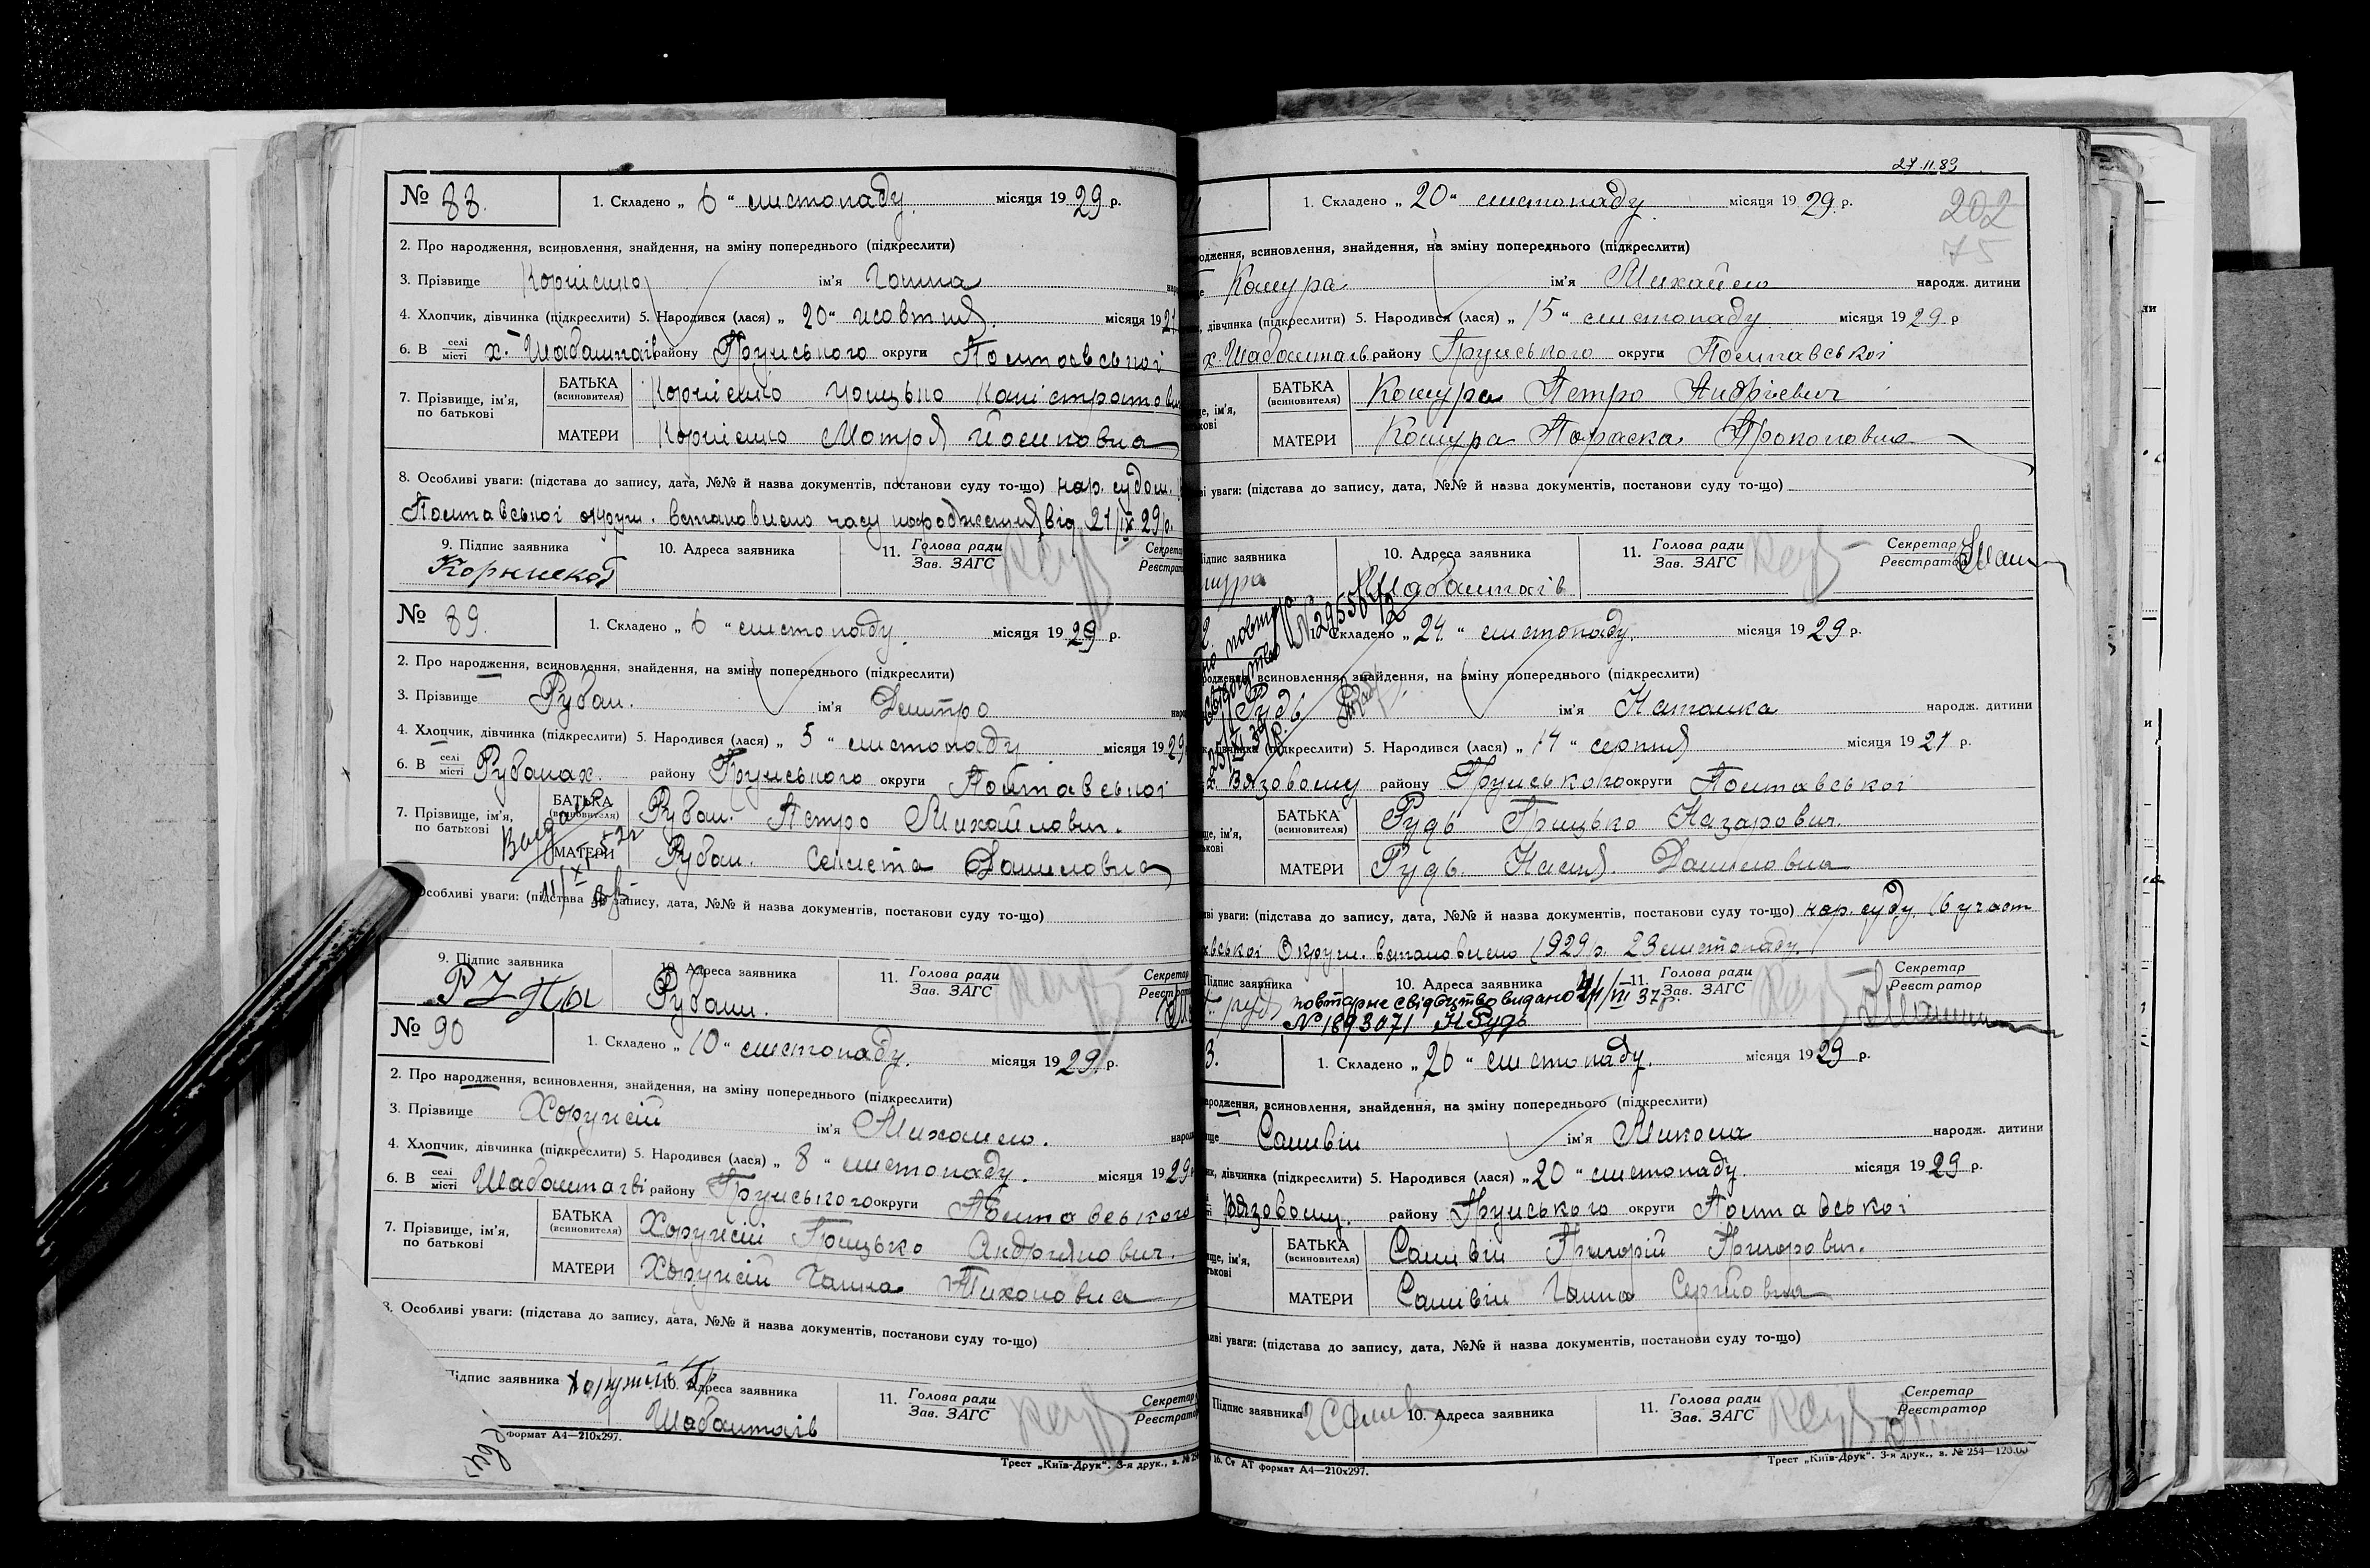 № 88. 1. Складено „ 6 “ листопаду. місяця 1929 р.
2. Про народження, всиновлення, знайдення, на зміну попереднього (підкреслити)
3. Прізвище Корнієнко ім'я Ганна
4. Хлопчик, дівчинка (підкреслити) 5. Народився (лася) „ 20 “ жовтня. місяця 1921
6. В селі місті х. Шабалтаїв району Грунського округи Полтавської
7. Прізвище, ім'я, по батькові
БАТЬКА (всиновителя) Корнієнко Грицько Калістратови
МАТЕРИ Корнієнко Мотря Йосиповна
8. Особливі уваги: (підстава до запису, дата, №№ й назва документів, постанови суду то-що) нар. судом.
Полтавської округи. встановлено часу народження від 21/IX 29р.
9. Підпис заявника 10. Адреса заявника 11. Голова ради Зав. ЗАГС Секретар Реєстрат
№ 89. 1. Складено „ 6 “ листопаду. місяця 1929 р.
2. Про народження, всиновлення, знайдення, на зміну попереднього (підкреслити)
3. Прізвище Рубан. ім'я Дмитро
4. Хлопчик, дівчинка (підкреслити) 5. Народився (лася) „ 5 “ листопаду місяця 1929
6. В селі місті Рубанах. району Грунського округи Полтавської
7. Прізвище, ім'я, по батькові
БАТЬКА (всиновителя) Рубан. Петро Михайлович.
МАТЕРИ Рубан. Даниловна
Особливі уваги: (підстава до запису, дата, №№ й назва документів, постанови суду то-що)
9. Підпис заявника 10. Адреса заявника 11. Голова ради Зав. ЗАГС Секретар Реєстрат
Рубани.
№ 90 1. Складено „ 10 “ листопаду. місяця 1929 р.
2. Про народження, всиновлення, знайдення, на зміну попереднього (підкреслити)
3. Прізвище Хоружій ім'я Михайло.
4. Хлопчик, дівчинка (підкреслити) 5. Народився (лася) „ 8 “ листопаду. місяця 1929
6. В селі місті району Грунського округи Полтавського
7. Прізвище, ім'я, по батькові
БАТЬКА (всиновителя) Хоружій Грицько Андріянович.
МАТЕРИ Хоружій Ганна Тихоновна
8. Особливі уваги: (підстава до запису, дата, №№ й назва документів, постанови суду то-що)
Підпис заявника Хоружій Гр 10. Адреса заявника 11. Голова ради Зав. ЗАГС Секретар Реєстрат
Шабалтаїв
формат А4—210х297.
Трест „Київ-Друк“. 3-я друк., з. №
27.11.89
202
75
1. Складено „ 20 “ листопаду. місяця 1929 р.
народження, всиновлення, знайдення, на зміну попереднього (підкреслити)
Кошура ім'я Михайло народж. дитини
дівчинка (підкреслити) 5. Народився (лася) „ 15 “ листопаду місяця 1929 р
х. Шабалтаїв району Грунського округи Полтавської
БАТЬКА (всиновителя) Кошура Петро Андрієвич
МАТЕРИ Кошура Параска Прокоповна
уваги: (підстава до запису, дата, №№ й назва документів, постанови суду то-що)
Підпис заявника 10. Адреса заявника 11. Голова ради Зав. ЗАГС Секретар Реєстратор
шура Шабалтаїв
Складено „ 24 “ листопаду. місяця 1929 р.
всиновлення, знайдення, на зміну попереднього (підкреслити)
Рудь ім'я Наталка народж. дитини
дівчинка (підкреслити) 5. Народився (лася) „ 14 “ серпня місяця 1921 р.
х. Вязовому району Грунського округи Полтавської
БАТЬКА (всиновителя) Рудь Грицько Назарович.
МАТЕРИ Рудь. Настя. Даниловна
уваги: (підстава до запису, дата, №№ й назва документів, постанови суду то-що) нар. суду. 16 участ
Округи. встановлено 1929 р. 23 листопаду.
Підпис заявника 10. Адреса заявника 11. Голова ради Зав. ЗАГС Секретар Реєстратор
повторне свідоцтво видано
№ 1893071 Н Рудь
3. 1. Складено „ 26 “ листопаду. місяця 1929 р.
народження, всиновлення, знайдення, на зміну попереднього (підкреслити)
Саливін ім'я Микола народж. дитини
дівчинка (підкреслити) 5. Народився (лася) „ 20 “ листопаду. місяця 1929 р.
Вязовому. району Грунського округи Полтавської
БАТЬКА (всиновителя) Саливін Григорій Григорович.
МАТЕРИ Саливін Ганна Сергіовна
уваги: (підстава до запису, дата, №№ й назва документів, постанови суду то-що)
Підпис заявника 10. Адреса заявника 11. Голова ради Зав. ЗАГС Секретар Реєстратор
16. Ст АТ формат А4—210х297.
Трест „Київ-Друк“. 3-я друк., з. № 254—120.00